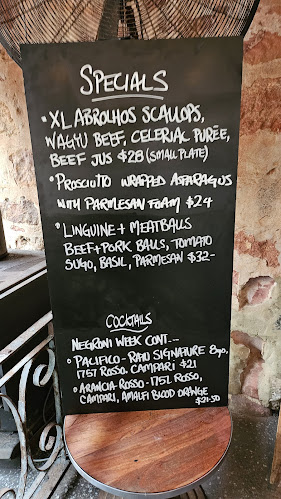 SPECIALS
• XL ABROLHOS SCALLOPS,
WAGYU BEEF, CELERIAC PURÉE,
BEEF JUS $28 (SMALL PLATE)
• PROSCIUTTO WRAPPED ASPARAGUS
WITH PARMESAN FOAM $24
• LINGUINE + MEATBALLS
BEEF + PORK BALLS, TOMATO
SUGO, BASIL, PARMESAN $32-
COCKTAILS
NEGRONI WEEK CONT...
• PACIFICO - RAIU SIGNATURE 8yo,
1757 ROSSO. CAMPARI $21
• ARANCIA ROSSO - 1757 ROSSO,
CAMPARI, AMALFI BLOOD ORANGE
$21.50